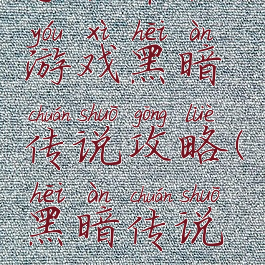 yóu xì hēi àn
游戏黑暗
chuán shuō gōng lüè
传说攻略(
hēi àn chuán shuō
黑暗传说